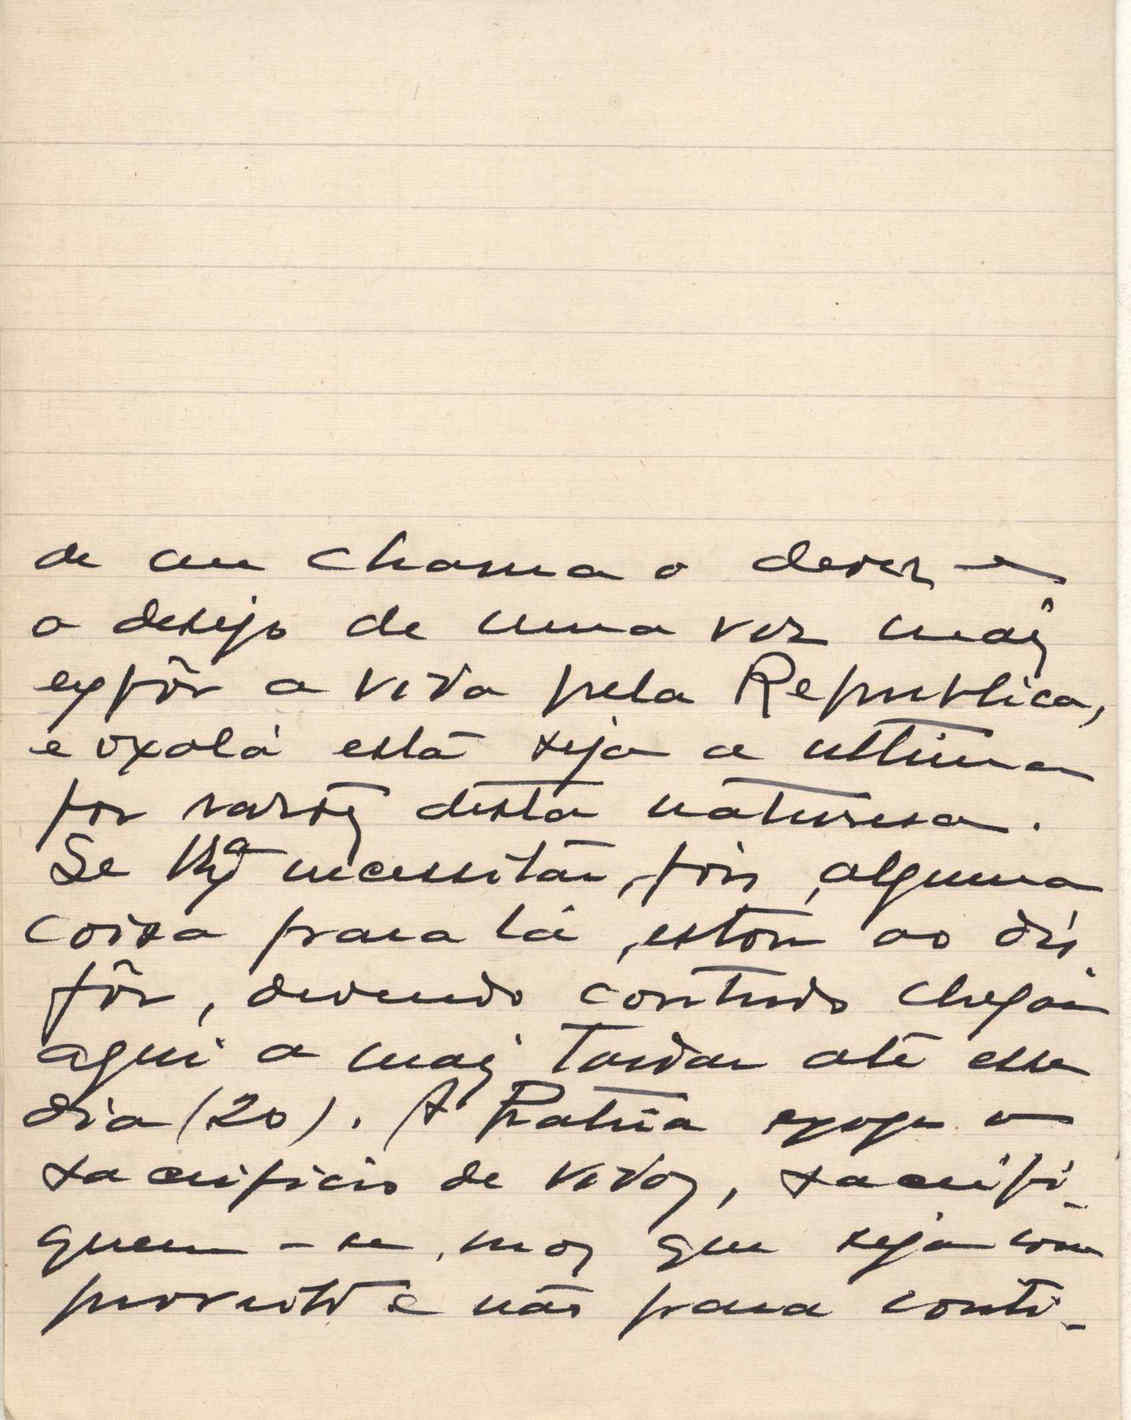 de me chama o dever e
o desejo de uma vez mais
expôr a vida pela Republica,
e oxalá esta seja a ultima
por razões desta naturesa.
Se V. necessitar, pois, alguma
coisa para lá, estou ao dis-
pôr, devendo contudo chegar
aqui a mais tardar até esse
dia (20). A Patria exige o
sacrificio de vidas, sacrifi-
quem-se, mas que seja com
proveito e não para conti-